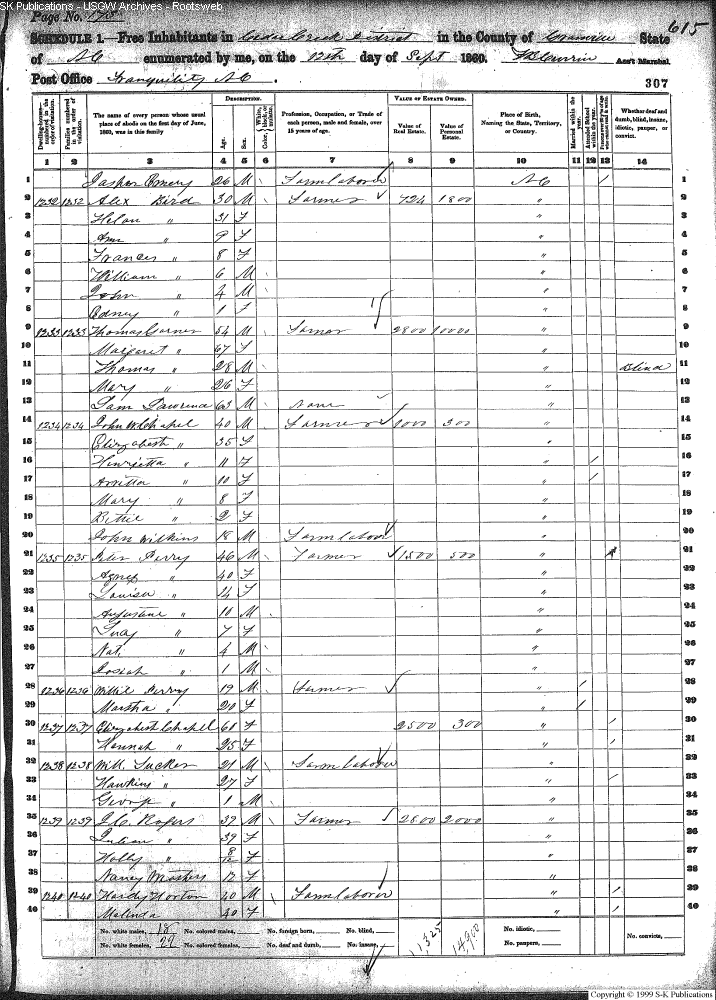 SK Publications - USGW Archives - Rootsweb
Page No. 615
SCHEDULE 1.—Free Inhabitants in Cedar Creek District in the County of Granville State
of N C enumerated by me, on the 12th day of Sept 1860. Ass't Marshal.
Post Office Tranquility N C . 307
Dwelling-houses numbered in the order of visitation.
Families numbered in the order of visitation.
The name of every person whose usual place of abode on the first day of June, 1860, was in this family
DESCRIPTION.
Age.
Sex.
Color, White, black, or mulatto.
Profession, Occupation, or Trade of each person, male and female, over 15 years of age.
VALUE OF ESTATE OWNED.
Value of Real Estate.
Value of Personal Estate.
Place of Birth, Naming the State, Territory, or Country.
Married within the year.
Attended School within the year.
Whether deaf and dumb, blind, insane, idiotic, pauper, or convict.
1 2 3 4 5 6 7 8 9 10 11 12 13 14
1 Jasper Emery 26 M \ Farm laborer N C / 1
2 1232 1232 Alex Bird 30 M \ Farmer 724 1800 " 2
3 Helen " 31 F " 3
4 Ann " 9 F " 4
5 Frances " 8 F " 5
6 William " 6 M " 6
7 John " 4 M " 7
8 Edney " 1 F " 8
9 1233 1233 Thomas Garner 54 M Farmer 2800 10000 " 9
10 Margaret " 67 F " 10
11 Thomas " 28 M " Blind 11
12 Mary " 26 F " 12
13 Sam 63 M None " 13
14 1234 1234 John W Chapel 40 M Farmer 1000 300 " 14
15 Elizabeth " 35 F " 15
16 Henrietta " 11 F " / 16
17 " 10 F " / 17
18 Mary " 8 F " 18
19 Bettie " 2 F " 19
20 John Wilkins 18 M Farm labor " 20
21 1235 1235 Peter Perry 46 M Farmer 1500 500 " 21
22 Agnes " 40 F " 22
23 Louisa " 14 F " 23
24 Augustine " 10 M " 24
25 Lucy " 7 F " 25
26 Nat. " 4 M " 26
27 Josiah " 1 M " 27
28 1236 1236 Willie Perry 19 M Farmer " / 28
29 Martha " 20 F " / 29
30 1237 1237 Elizabeth Chapel 61 F 2500 300 " / 30
31 Hannah " 25 F " / 31
32 1238 1238 Will. Tucker 21 M Farm laborer " 32
33 Hawkins " 27 F " / 33
34 George " 1 M " 34
35 1239 1239 J C Rogers 39 M Farmer 2800 2000 " 35
36 Julian " 39 F " 36
37 Holly " 8/12 F " 37
38 Nancy 12 F " 38
39 1240 1240 Hardy Horton 40 M Farm laborer " / 39
40 Malinda 40 F " / 40
No. white males, 18 No. colored males, No. foreign born, No. blind, 11325 14900 No. idiotic, No. convicts,
No. white females, 22 No. colored females, No. deaf and dumb, No. insane, No. paupers,
Copyright © 1999 S-K Publications